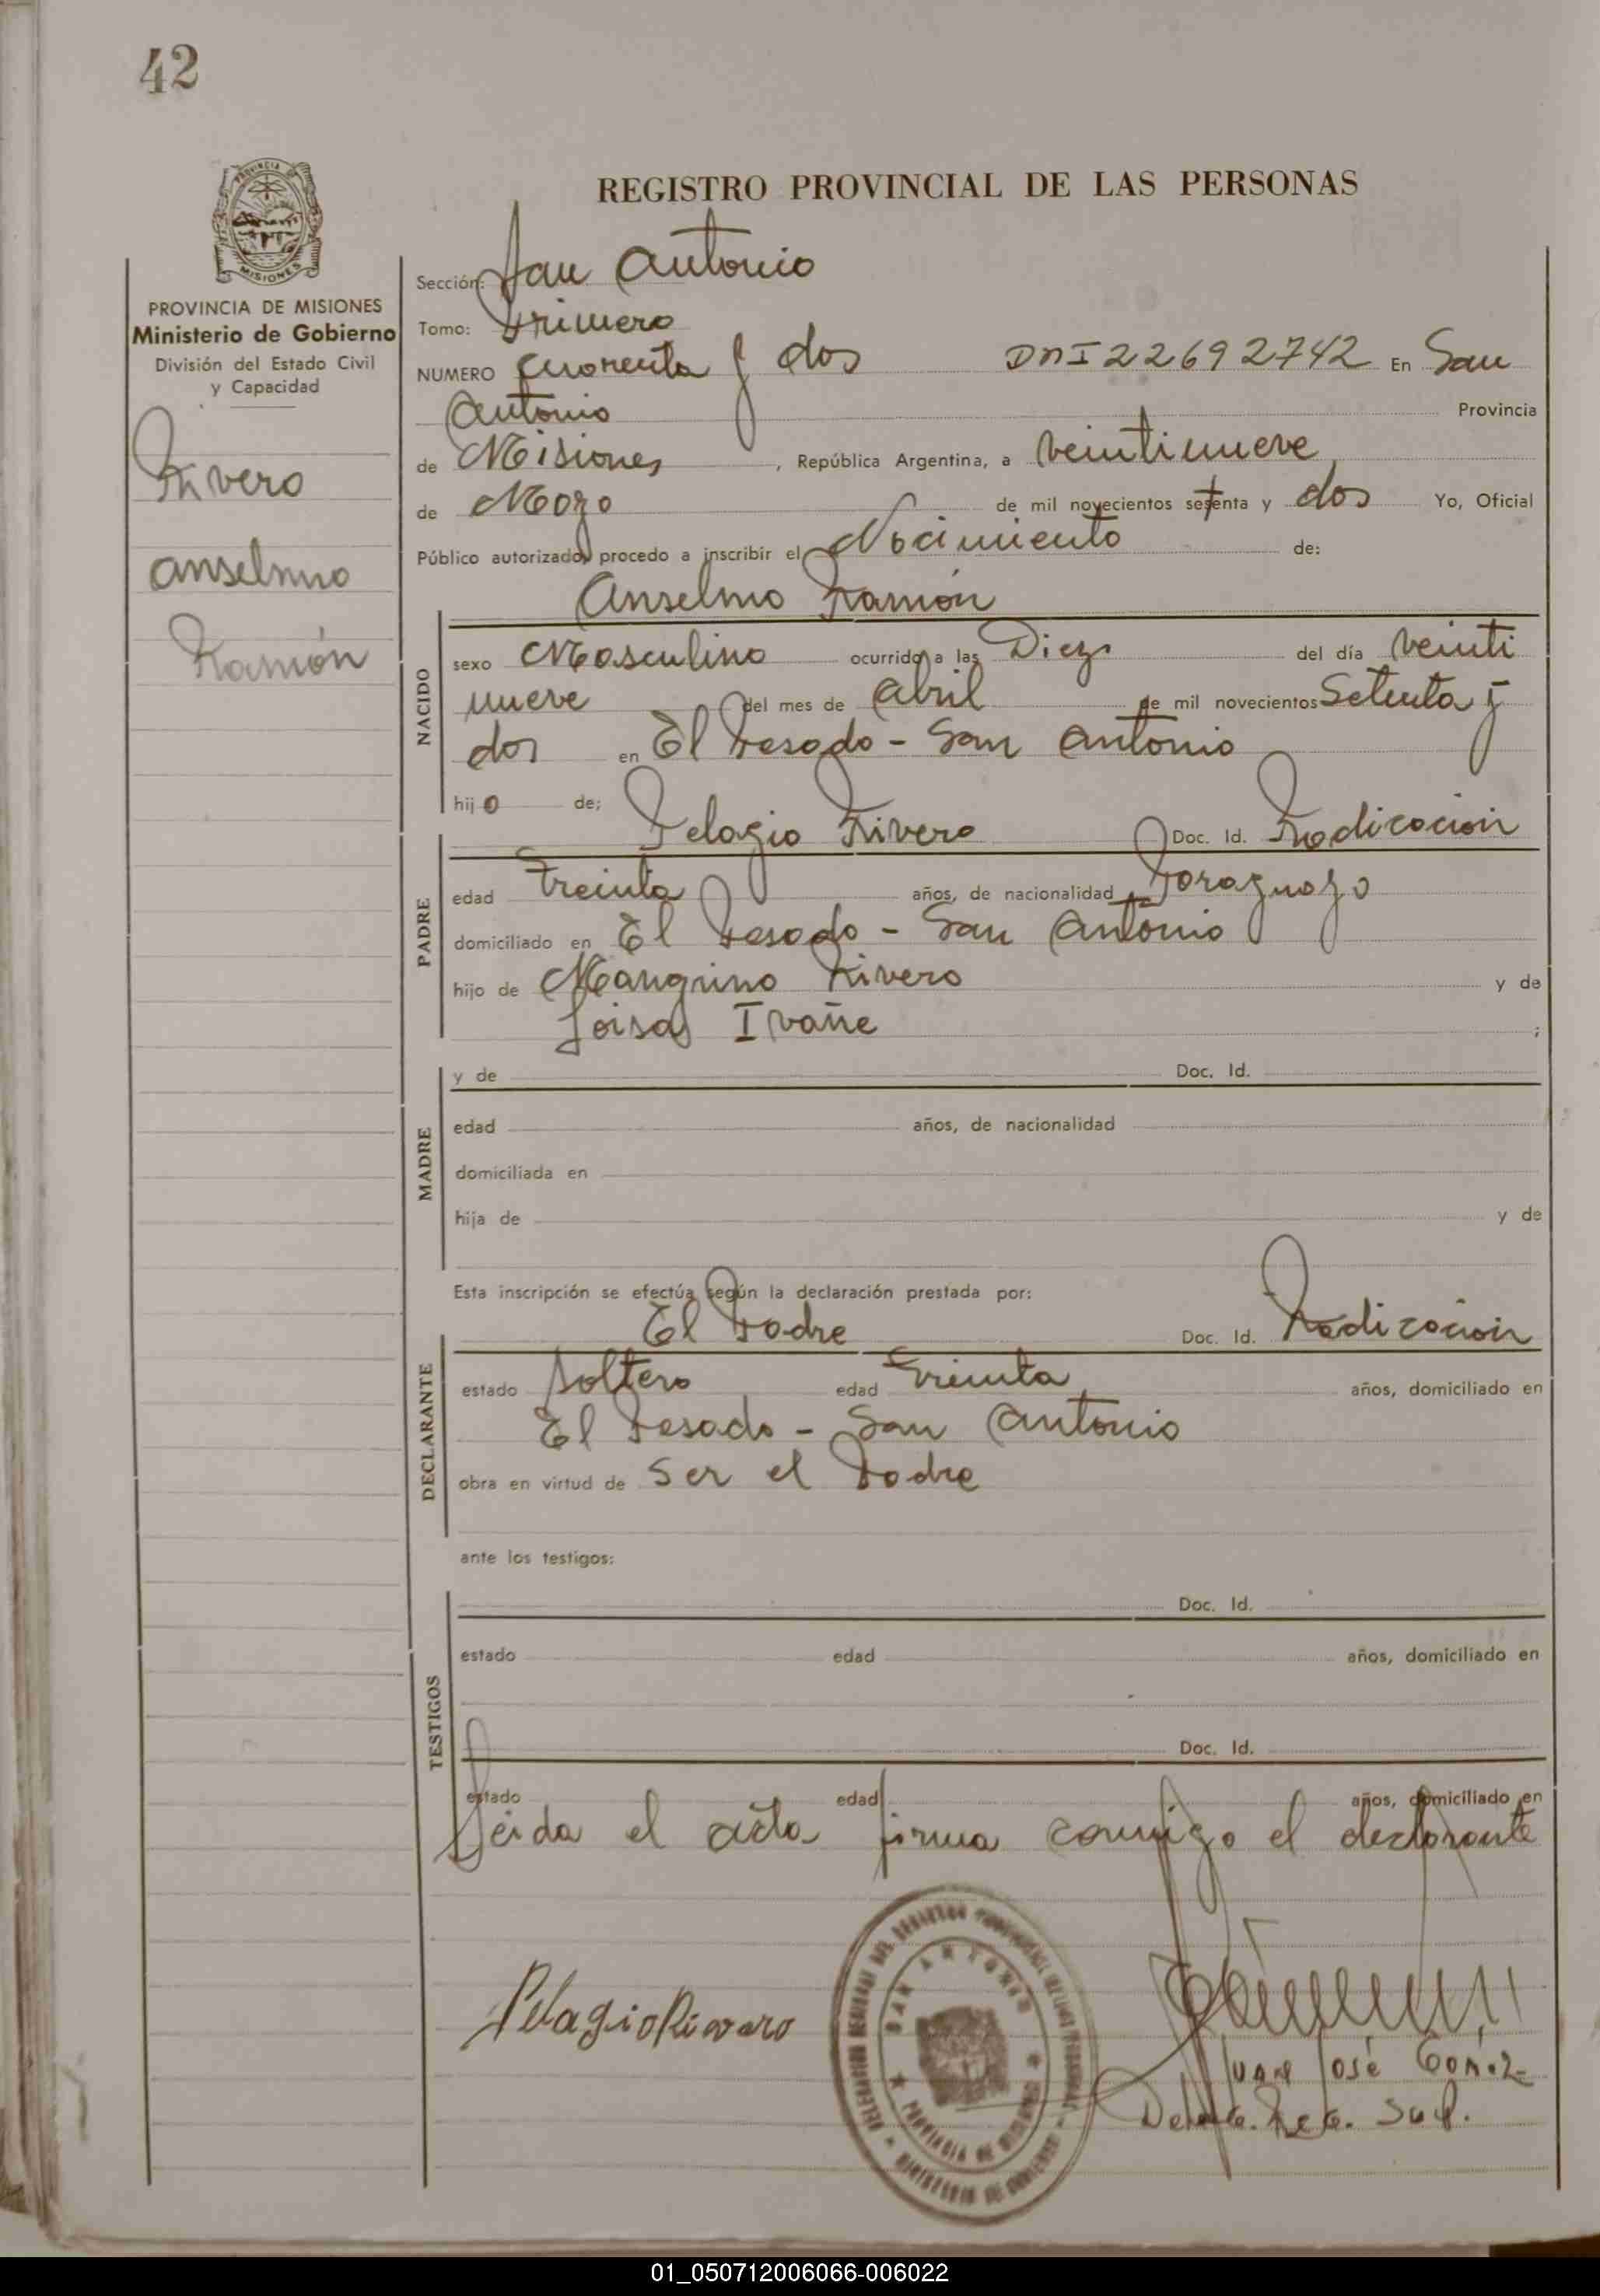 42
REGISTRO PROVINCIAL DE LAS PERSONAS
PROVINCIA DE MISIONES
Ministerio de Gobierno
División del Estado Civil
y Capacidad
Rivero
Anselmo
Ramón
Sección: San Antonio
Tomo: Primero
NUMERO Cuarenta y dos DNI 22692742 En San
Antonio Provincia
de Misiones, República Argentina, a veintinueve
de Mayo de mil novecientos setenta y dos Yo, Oficial
Público autorizado, procedo a inscribir el Nacimiento de:
Anselmo Ramón
NACIDO
sexo Masculino ocurrido a las Diez del día veinti
nueve del mes de Abril de mil novecientos Setenta y
dos en El Pesado - San Antonio
hijo de; Pelagio Rivero Doc. Id. Radicación
PADRE
edad Treinta años, de nacionalidad Paraguayo
domiciliado en El Pesado - San Antonio
hijo de Rivero y de
Ivañe ;
MADRE
y de Doc. Id.
edad años, de nacionalidad
domiciliada en
hija de y de
Esta inscripción se efectúa según la declaración prestada por:
El Padre Doc. Id. Radicación
DECLARANTE
estado Soltero edad Treinta años, domiciliado en
El Pesado - San Antonio
obra en virtud de Ser el Padre
ante los testigos:
TESTIGOS
Doc. Id.
estado edad años, domiciliado en
Doc. Id.
estado edad años, domiciliado en
Leida el acta firma conmigo el declarante
Pelagio Rivero
SAN ANTONIO
PROVINCIA DE MISIONES
MINISTERIO DE GOBIERNO
Juan José
01_050712006066-006022